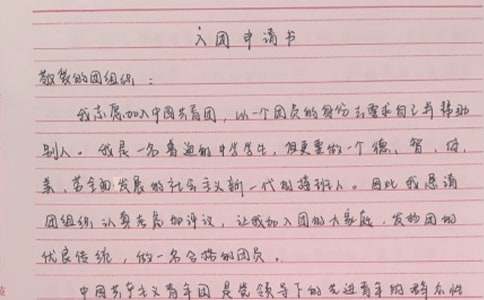 入团申请书
敬爱的团组织：
我志愿加入中国共青团，以一个团员的身份去要求自己与帮助
别人。我是一名普通的中学学生，但更要做一个德、智、体、
美、劳全面发展的社会主义新一代的接班人。因此我恳请
团组织认真考虑加评议，让我加入团的大家庭，发的团的
优良传统，做一名合格的团员。
中国共产主义青年团是党领导下的先进青年的群众性